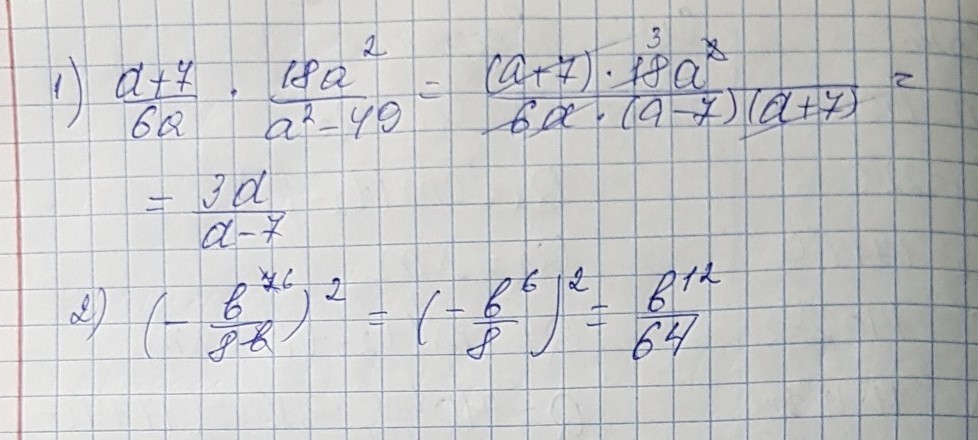 1) a+7/6a · 18a²/a²-49 = (a+7)·18a²/6a·(a-7)(a+7) =
3
= 3a/a-7
2) (- в⁷⁶/8в)² = (- в⁶/8)² = в¹²/64